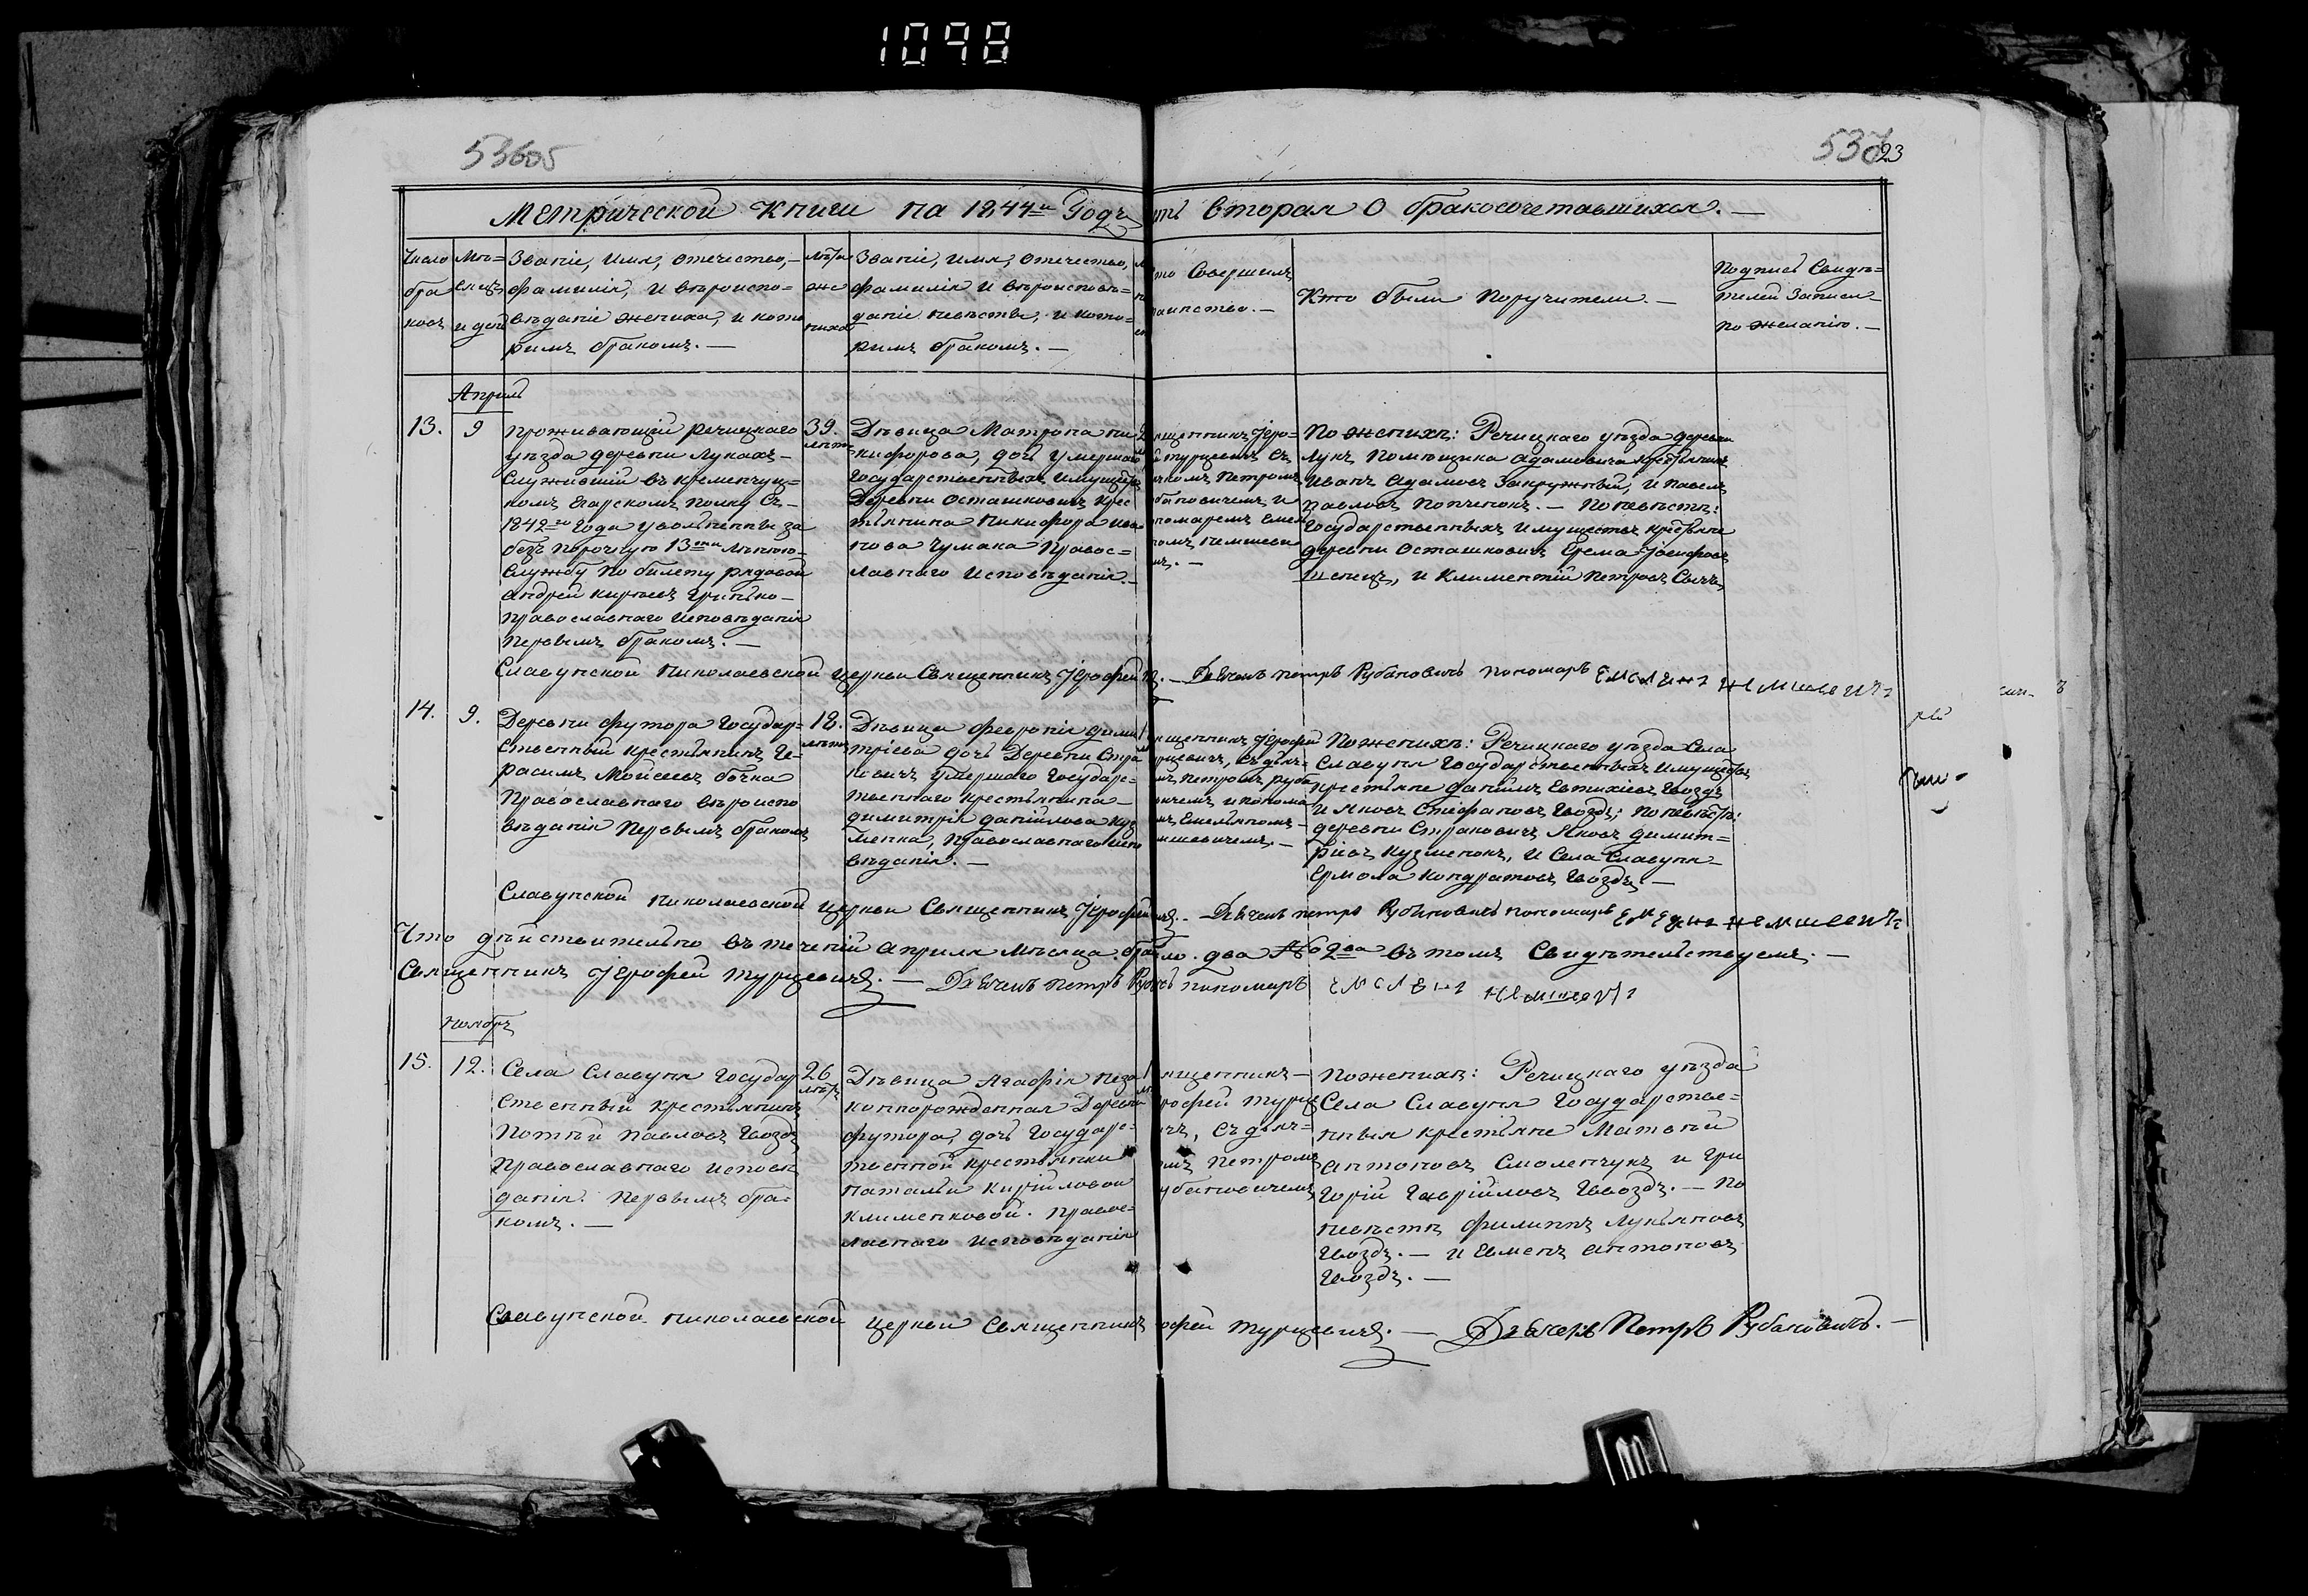 1098
53605
537
23
Метрической Книги на 1844й Годъ
ть вторая О бракосочетавшихся. —
Число
бра
ковъ
Мѣ=
сяцъ
и дни
Званіе, Имя, отечество, —
фамилія, и вѣроиспо=
вѣданіе жениха, и кото
римъ бракомъ. —
лѣта
же
ниха
Званіе, имя, отечество,
фамилія и вѣроисповѣ=
даніе невѣсты, и кото=
римъ бракомъ. —
то Совершилъ
таинство. —
Кто были Поручители. —
Подпись Свидѣ=
телей Записи
по желанію. —
Апрель
13.
9
Проживающій Речицкаго
уѣзда деревни Лукахъ —
Служившій въ Кременчуц=
комъ Егарскомъ Полку Съ —
1842го Года уволненны за
безъ порочную 13ти лѣтнюю —
Службу По билету рядовой
Андрей Кирѣевъ Гринько —
Православнаго Исповѣданія
Первымъ бракомъ. —
39.
лѣтъ
Дѣвица Матрона Ни
кифорова, дочь умершаго
Государственныхъ Имуществъ
Деревни Осташковичъ Крес
тьянина Никифора Ива
нова Чумака Правос=
лавнаго Исповѣданія. —
ященникъ Іеро=
й Турцевичъ Съ
чкомъ Петромъ
бановичемъ и
номаремъ Емел
номъ Немшеви
мъ. —
По женихѣ: Речицкаго уѣзда деревни
Лукъ Помѣщика Адамовича крестьянинъ
Иванъ Адамовъ Закружный, и Павелъ
Павловъ Попченокъ. — По невѣстѣ:
Государственныхъ имуществъ крестьяне
деревни Осташковичъ Ерема Іосифовъ
Шенецъ, и Климентій Петровъ Сычъ,
Славунской Николаевской Церкви Священникъ Іерофей
— Дьячекъ петръ Рубановичъ пономаръ Емелянъ Немшевичъ
14.
9.
Деревни футора Государ=
ственный крестьянинъ Ге=
расимъ Мойсеевъ бочка
Православнаго вѣроиспо
вѣданія Первымъ бракомъ
18.
лѣтъ
Дѣвица Февронія Дими
тріева дочь Деревни Стра
ковичъ умершаго Государс=
твеннаго крестьянина —
димитрія данійлова Куз
менка, Православнаго испо
вѣданія. —
ященникъ Іерофей
урцевичъ, Съ дьяч=
мъ Петромъ Руба
вичемъ и понома
мъ Емельяномъ —
мшевичемъ. —
По женихѣ: Речицкаго уѣзда Села
Славуня Государственныхъ имуществъ
крестьяне данійлъ Евтихіевъ Гвоздь
и Яковъ Стефановъ Гвоздь; по невѣстѣ:
деревни Страковичъ Яковъ Димит=
ріевъ Кузменокъ, и Села Славуня —
Ермола Кондратовъ Гвоздь. —
Славунской Николаевской Церкви Священникъ Іерофей
— Дьячекъ петръ Рубановичъ пономаръ Емелянъ Немшевичъ
Что дѣйствительно въ теченіи апреля мѣсяца бра
ло. два №2ва въ томъ Свидѣтельствуемъ. —
Священникъ Іерофей Турцевичъ. — Дьячекъ петръ Руб
пономаръ Емелянъ Немшевичъ
Ноябрь
15.
12.
Села Славуня Государ
ственный крестьянинъ
Потѣй Павловъ Гвоздь
Православнаго исповѣ
данія. Первымъ бра=
комъ. —
26
лѣтъ
Дѣвица Агафія неза
коннорожденная Деревни
футора, дочь Государс=
твенной крестьянки
Наталіи Кирійловой
Клименковой. Правос=
лавнаго исповѣданія
ященникъ —
рофей Турце
чъ, Съ дьяч=
мъ Петромъ
убановичемъ
По женихѣ: Речицкаго уѣзда
Села Славуня Государстве=
нныя крестьяне Матвѣй
антоновъ Смоленчукъ и Гри
горій Гаврійловъ Гвоздь. — По
невѣстѣ Филиппъ Лукьяновъ
Гвоздь. — и Евменъ Антоновъ
Гвоздь. —
Славунской Николаевской Церкви Священникъ
рофей Турцевичъ. — Дьячекъ Петръ Рубановичъ. —